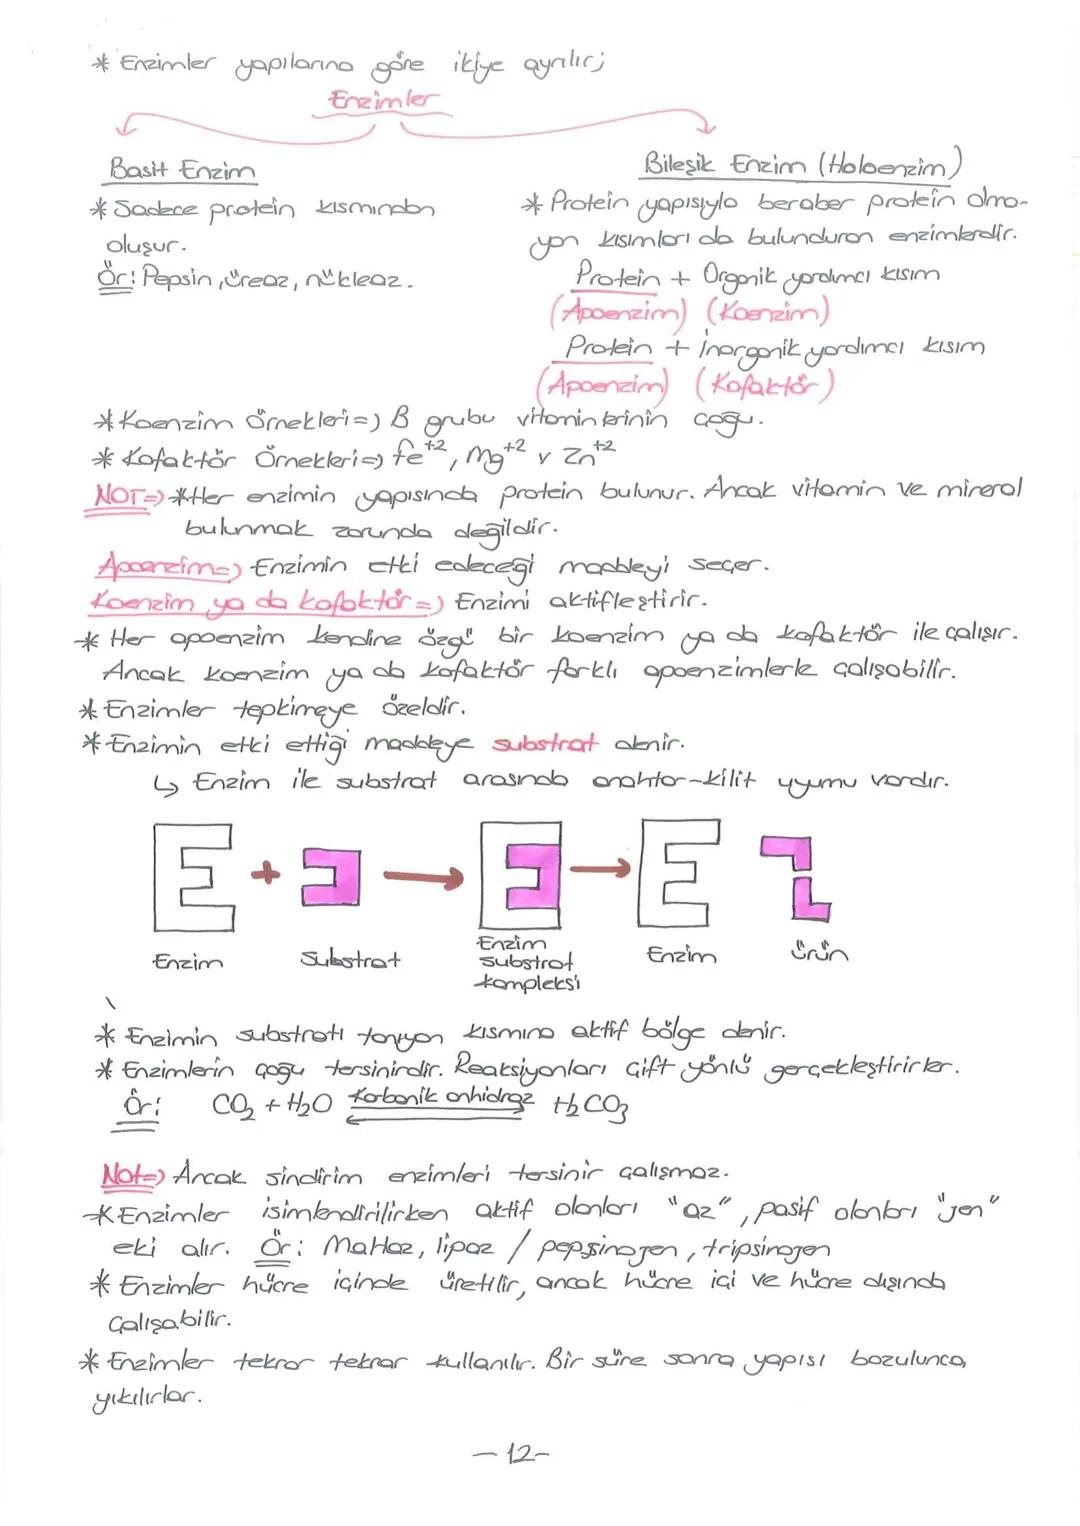 * Enzimler yapılarına göre ikiye ayrılır;
Enzimler
Basit Enzim
* Sadece protein kısmından
oluşur.
Ör: Pepsin, üreaz, nükleaz.
Bileşik Enzim (Holoenzim)
* Protein yapısıyla beraber protein olma-
yan kısımları da bulunduran enzimlerdir.
Protein + Organik yardımcı kısım
(Apoenzim) (Koenzim)
Protein + İnorganik yardımcı kısım
(Apoenzim) (Kofaktör)
* Koenzim Örnekleri=) B grubu vitaminlerinin çoğu.
* Kofaktör Örnekleri=) Fe+2, Mg+2 v Zn+2
NOT=) *Her enzimin yapısında protein bulunur. Ancak vitamin ve mineral
bulunmak zorunda değildir.
Apoenzim=) Enzimin etki edeceği maddeyi seçer.
Koenzim ya da kofaktör=) Enzimi aktifleştirir.
* Her apoenzim kendine özgü bir koenzim ya da kofaktör ile çalışır.
Ancak koenzim ya da kofaktör farklı apoenzimlerle çalışabilir.
* Enzimler tepkimeye özeldir.
* Enzimin etki ettiği maddeye substrat denir.
↳ Enzim ile substrat arasında anahtar-kilit uyumu vardır.
E + → E → E
Enzim Substrat Enzim substrat kompleksi Enzim Ürün
* Enzimin substratı tanıyan kısmına aktif bölge denir.
* Enzimlerin çoğu tersinirdir. Reaksiyonları çift yönlü gerçekleştirirler.
Ör: CO2 + H2O Karbonik anhidraz H2CO3
Not=) Ancak sindirim enzimleri tersinir çalışmaz.
* Enzimler isimlendirilirken aktif olanları "az", pasif olanları "jen"
eki alır. Ör: Maltaz, lipaz / pepsinojen, tripsinojen
* Enzimler hücre içinde üretilir, ancak hücre içi ve hücre dışında
çalışabilir.
* Enzimler tekrar tekrar kullanılır. Bir süre sonra yapısı bozulunca,
yıkılırlar.
-12-